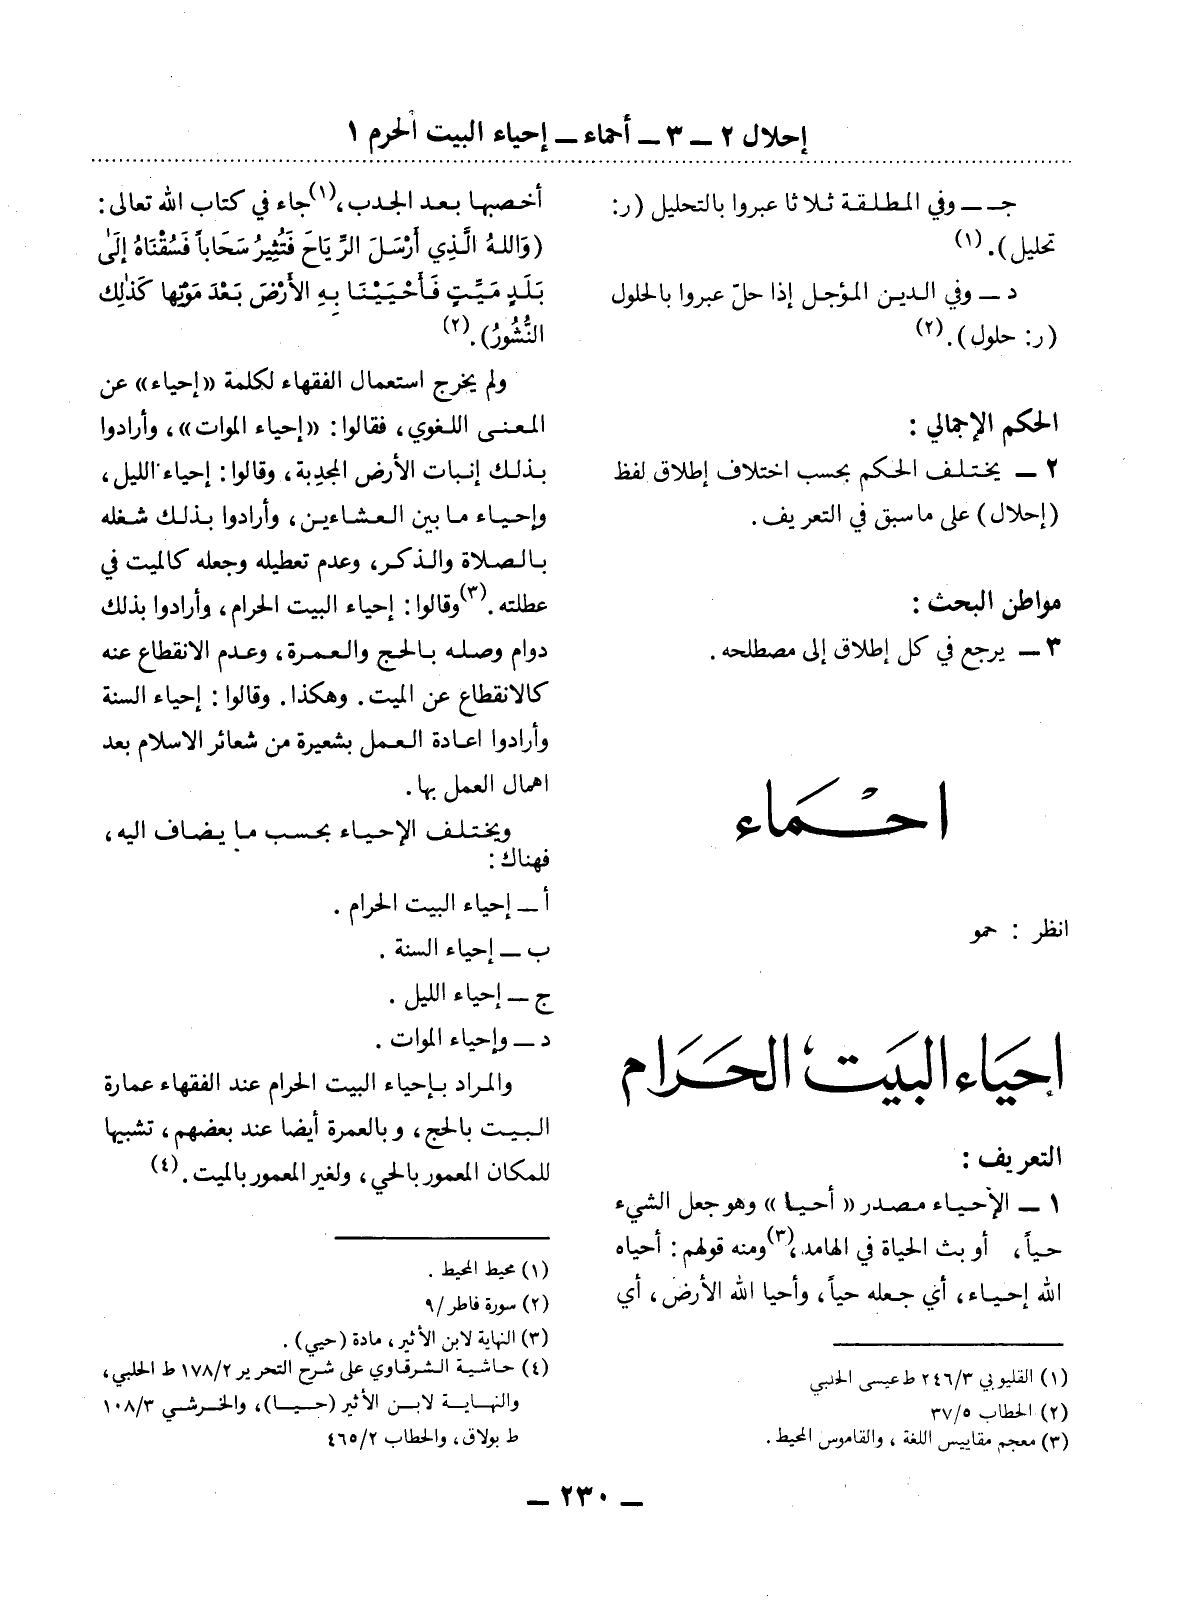 إحلال ٢ ــ ٣ ــ أحماء ــ إحياء البيت الحرم ١
جـ ــ وفي المطلقة ثلاثا عبروا بالتحليل (ر:
تحليل). (١)
د ــ وفي الدين المؤجل إذا حلّ عبروا بالحلول
(ر: حلول). (٢)
الحكم الإجمالي :
٢ ــ يختلف الحكم بحسب اختلاف إطلاق لفظ
(إحلال) على ماسبق في التعريف.
مواطن البحث :
٣ ــ يرجع في كل إطلاق إلى مصطلحه .
احْماء
انظر : حمو
إحياء البيت الحرام
التعريف :
١ ــ الإحياء مصدر «أحيا» وهو جعل الشيء
حياً، أو بث الحياة في الهامد،(٣)ومنه قولهم : أحياه
الله إحياء، أي جعله حياً، وأحيا الله الأرض، أي
(١) القليوبي ٢٤٦/٣ ط عيسى الحلبي
(٢) الحطاب ٣٧/٥
(٣) معجم مقاييس اللغة ، والقاموس المحيط .
أخصبها بعد الجدب،(١)جاء في كتاب الله تعالى:
(وَاللهُ الَّذِي أَرْسَلَ الرِّيَاحَ فَتُثِيرُ سَحَاباً فَسُقْنَاهُ إلَىٰ
بَلَدٍ مَيِّتٍ فَأَحْيَيْنَا بِهِ الأَرْضَ بَعْدَ مَوْتِها كَذٰلِكَ
النُّشُورُ). (٢)
ولم يخرج استعمال الفقهاء لكلمة «إحياء» عن
المعنى اللغوي، فقالوا: «إحياء الموات»، وأرادوا
بذلك إنبات الأرض المجدبة، وقالوا: إحياء الليل،
وإحياء ما بين العشاءين، وأرادوا بذلك شغله
بالصلاة والذكر، وعدم تعطيله وجعله كالميت في
عطلته .(٣)وقالوا: إحياء البيت الحرام، وأرادوا بذلك
دوام وصله بالحج والعمرة، وعدم الانقطاع عنه
كالانقطاع عن الميت. وهكذا. وقالوا: إحياء السنة
وأرادوا اعادة العمل بشعيرة من شعائر الاسلام بعد
اهمال العمل بها.
ويختلف الإحياء بحسب ما يضاف اليه،
فهناك:
أ ــ إحياء البيت الحرام .
ب ــ إحياء السنة .
ج ــ إحياء الليل .
د ــ وإحياء الموات .
والمراد بإحياء البيت الحرام عند الفقهاء عمارة
البيت بالحج، وبالعمرة أيضا عند بعضهم، تشبيها
للمكان المعمور بالحي، ولغير المعمور بالميت. (٤)
(١) محيط المحيط .
(٢) سورة فاطر /٩
(٣) النهاية لابن الأثير، مادة (حيي) .
(٤) حاشية الشرقاوي على شرح التحرير ١٧٨/٢ ط الحلبي،
والنهاية لابن الأثير (حيا)، والخرشي ١٠٨/٣
ط بولاق، والحطاب ٤٦٥/٢
ــ ٢٣٠ ــ